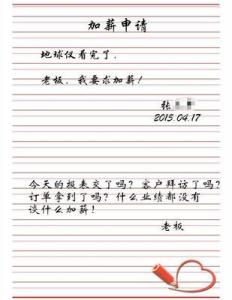 加薪申请
地球仪看完了，
老板，我要求加薪！
张
2015.04.17
今天的报表交了吗？客户拜访了吗？
订单拿到了吗？什么业绩都没有
谈什么加薪！
老板